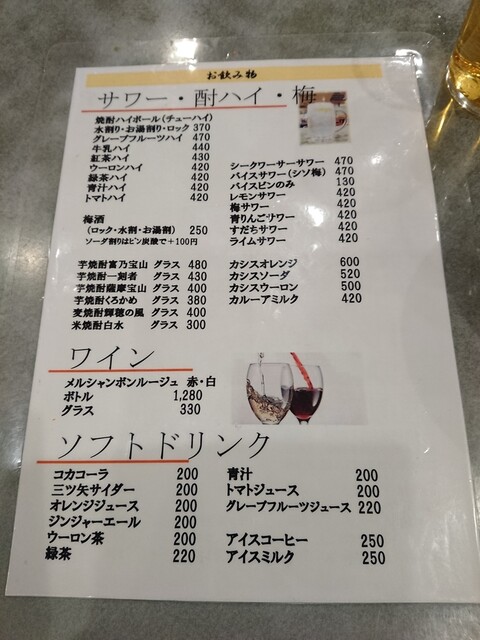 お飲み物
サワー・酎ハイ・梅
焼酎ハイボール(チューハイ)
水割り・お湯割り・ロック 370
グレープフルーツハイ 470
牛乳ハイ 440
紅茶ハイ 430
ウーロンハイ 420
緑茶ハイ 420
青汁ハイ 420
トマトハイ 420
梅酒
(ロック・水割・お湯割) 250
ソーダ割りはビン炭酸で+100円
シークワーサーサワー 470
バイスサワー(シソ梅) 470
バイスビンのみ 130
レモンサワー 420
梅サワー 420
青りんごサワー 420
すだちサワー 420
ライムサワー 420
芋焼酎富乃宝山 グラス 480
芋焼酎一刻者 グラス 430
芋焼酎薩摩宝山 グラス 400
芋焼酎くろかめ グラス 380
麦焼酎輝穂の風 グラス 400
米焼酎白水 グラス 300
カシスオレンジ 600
カシスソーダ 520
カシスウーロン 500
カルーアミルク 420
ワイン
メルシャンボンルージュ 赤・白
ボトル 1,280
グラス 330
ソフトドリンク
コカコーラ 200
三ツ矢サイダー 200
オレンジジュース 200
ジンジャーエール 200
ウーロン茶 200
緑茶 220
青汁 200
トマトジュース 200
グレープフルーツジュース 220
アイスコーヒー 250
アイスミルク 250